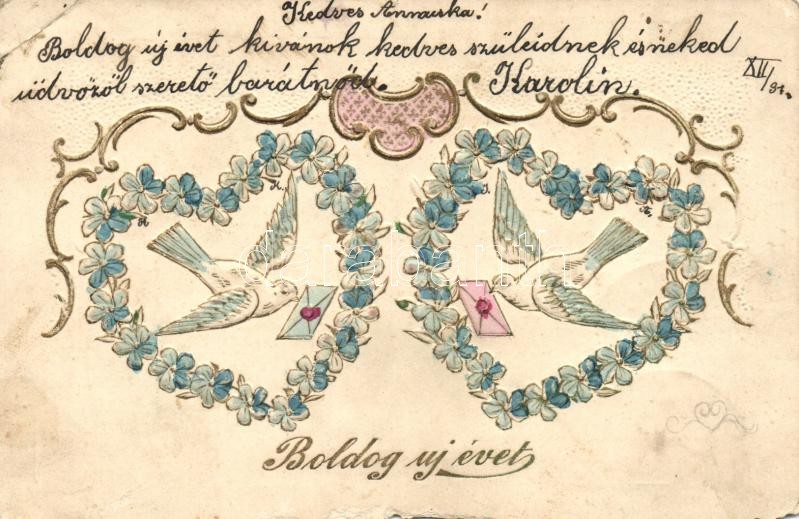 Kedves Annuska!
Boldog új évet kivánok kedves szüleidnek és néked
üdvözöl szerető barátnőd. Karolin. XII/31.
darabanth
Boldog uj évet